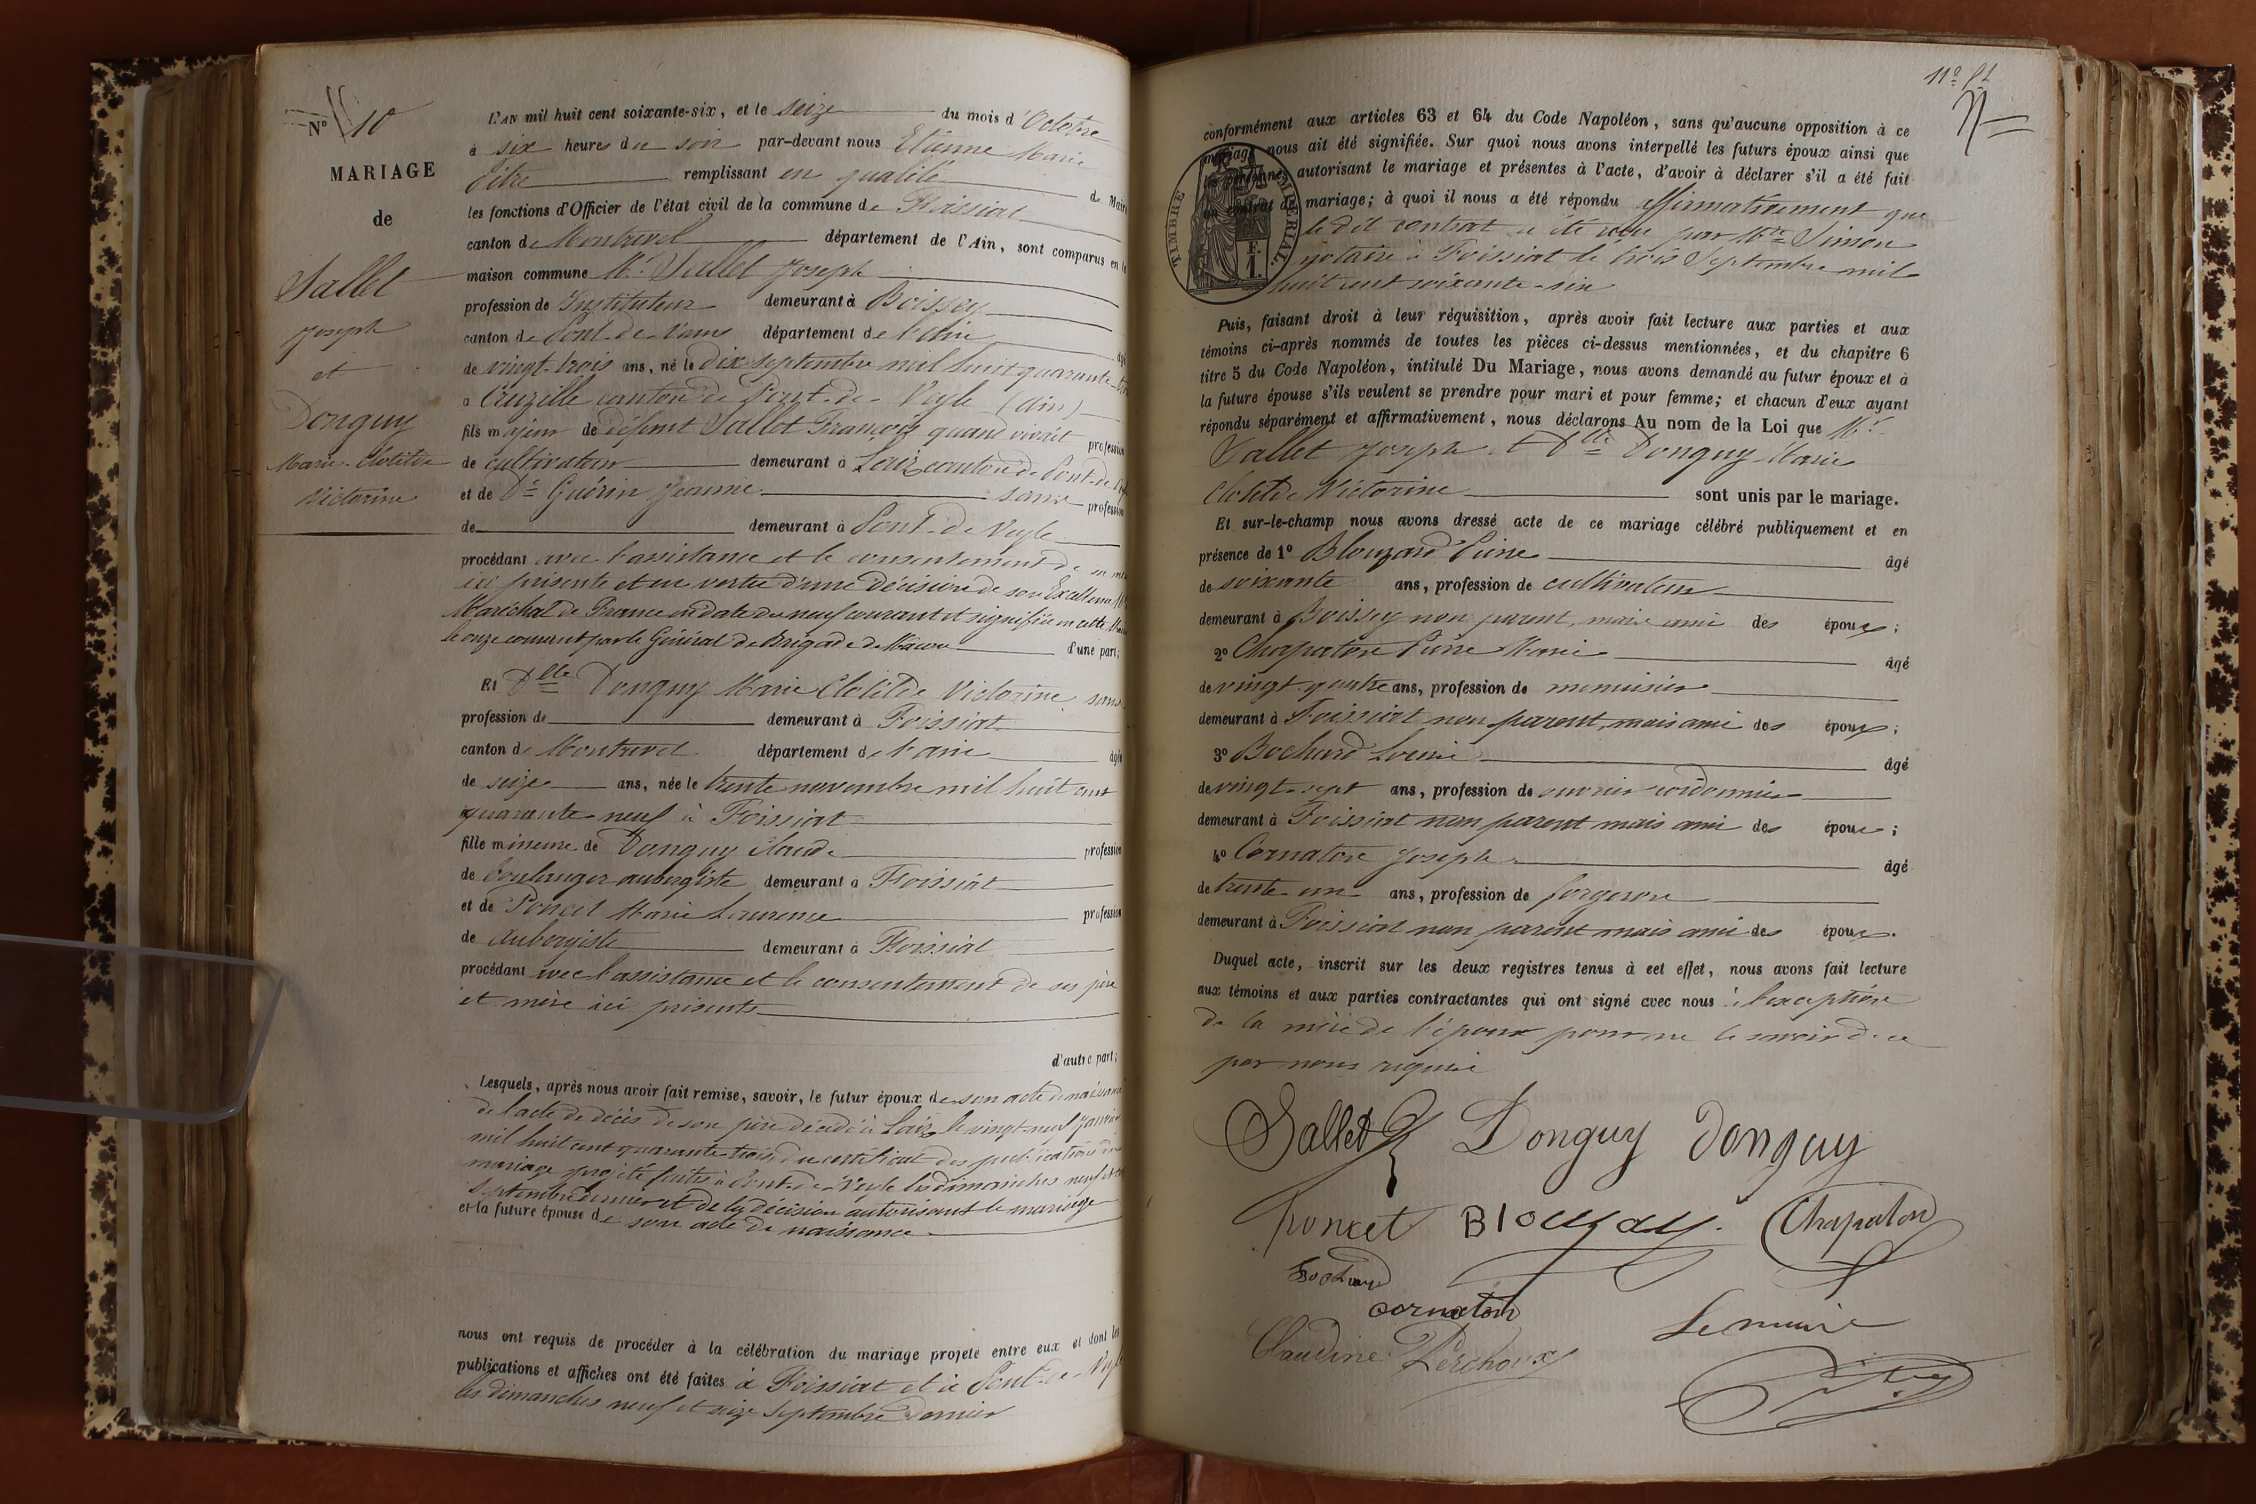 N° 10
MARIAGE
de
Sallet
Joseph
et
Donguy
Marie-Clotilde
Victorine
L'AN mil huit cent soixante-six, et le seize du mois d'Octobre
à six heures du soir par-devant nous Etienne Marie
remplissant en qualité de Maire
les fonctions d'Officier de l'état civil de la commune de Foissiat
canton de Montrevel département de l'Ain, sont comparus en la
maison commune Mr Sallet Joseph
profession de Instituteur demeurant à Boissey
canton de Pont-de-Vaux département de l'ain âgé
de vingt-trois ans, né le dix septembre mil huit quarante-trois
à Cruzille canton de Pont-de-Veyle (Ain)
fils majeur de défunt Sallet François quand vivait profession
de cultivateur demeurant à Laiz canton de Pont-de-Veyle
et de De Guérin Jeanne sans profession
de demeurant à Pont-de-Veyle
procédant avec l'assistance et le consentement de sa mère
ici présente et en vertu d'une décision de son Excellence le
Maréchal de France en date du neuf courant et signifiée en cette Mairie
le onze courant par le Général de Brigade de Mâcon d'une part;
Et Dlle Donguy Marie Clotilde Victorine sans
profession de demeurant à Foissiat
canton de Montrevel département de l'ain âgée
de seize ans, née le trente novembre mil huit cent
quarante neuf à Foissiat
fille mineure de Donguy Claude profession
de boulanger aubergiste demeurant à Foissiat
et de Poncet Marie Laurence profession
de aubergiste demeurant à Foissiat
procédant avec l'assistance et le consentement de ses père
et mère ici présents
d'autre part;
Lesquels, après nous avoir fait remise, savoir, le futur époux de son acte de naissance
de l'acte de décès de son père décédé à Laiz le vingt-neuf Janvier
mil huit cent quarante trois du certificat des publications du
mariage projeté faites à Pont-de-Veyle les dimanches neuf et
septembre dernier et de la décision autorisant le mariage
et la future épouse de son acte de naissance
nous ont requis de procéder à la célébration du mariage projeté entre eux et dont les
publications et affiches ont été faites à Foissiat et à Pont-de-Veyle
les dimanches neuf et seize Septembre dernier
conformément aux articles 63 et 64 du Code Napoléon, sans qu'aucune opposition à ce
mariage nous ait été signifiée. Sur quoi nous avons interpellé les futurs époux ainsi que
les personnes autorisant le mariage et présentes à l'acte, d'avoir à déclarer s'il a été fait
un contrat de mariage; à quoi il nous a été répondu affirmativement que
le dit contrat a été reçu par Me Simon
notaire à Foissiat le trois Septembre mil
huit cent soixante-six
TIMBRE IMPERIAL
F.
1.
Puis, faisant droit à leur réquisition, après avoir fait lecture aux parties et aux
témoins ci-après nommés de toutes les pièces ci-dessus mentionnées, et du chapitre 6
titre 5 du Code Napoléon, intitulé Du Mariage, nous avons demandé au futur époux et à
la future épouse s'ils veulent se prendre pour mari et pour femme; et chacun d'eux ayant
répondu séparément et affirmativement, nous déclarons Au nom de la Loi que Mr
Sallet Joseph et Dlle Donguy Marie
Clotilde Victorine sont unis par le mariage.
Et sur-le-champ nous avons dressé acte de ce mariage célébré publiquement et en
présence de 1° Blouzard Pierre âgé
de soixante ans, profession de cultivateur
demeurant à Boissey non parent, mais ami des époux;
2° Chapaton Pierre Marie âgé
de vingt-quatre ans, profession de menuisier
demeurant à Foissiat non parent, mais ami des époux;
3° Bochard Louis âgé
de vingt-sept ans, profession de ouvrier cordonnier
demeurant à Foissiat non parent mais ami des époux;
4° Cornaton Joseph âgé
de trente-un ans, profession de forgeron
demeurant à Foissiat non parent mais ami des époux.
Duquel acte, inscrit sur les deux registres tenus à cet effet, nous avons fait lecture
aux témoins et aux parties contractantes qui ont signé avec nous à l'exception
de la mère de l'époux pour ne le savoir de ce
par nous requise
Sallet Donguy Donguy
Poncet Blouzard Chapaton
Bochard
cornaton
Le maire
Claudine Perchoux